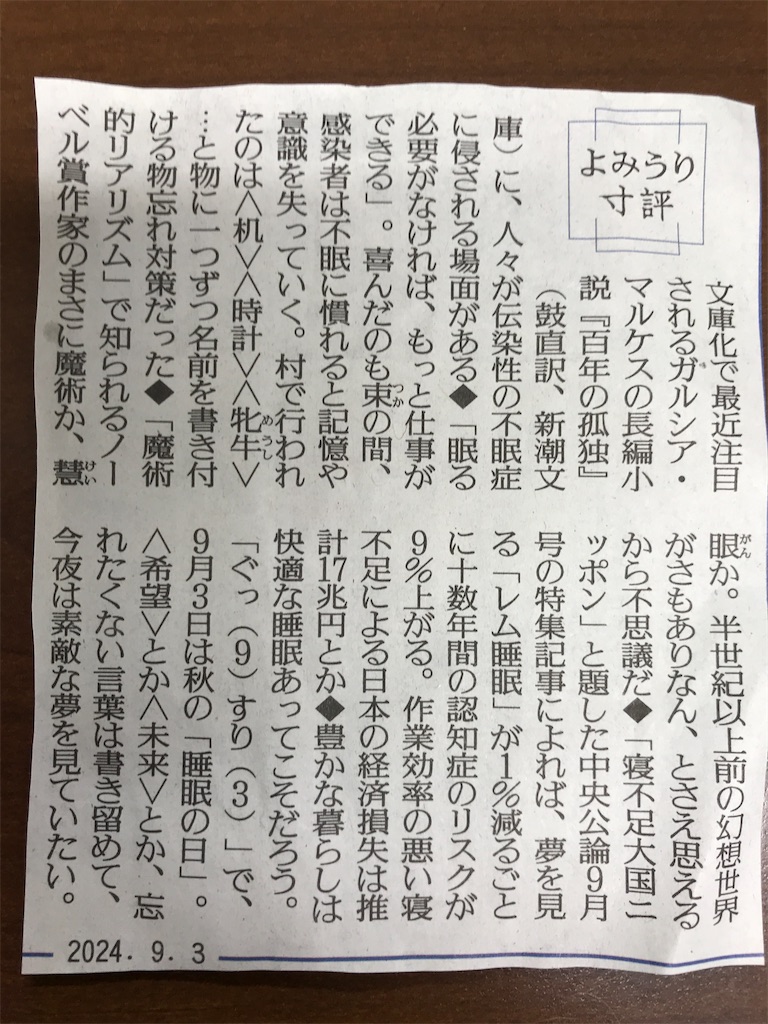 よみうり
寸評
文庫化で最近注目
されるガルシア・
マルケスの長編小
説『百年の孤独』
（鼓直訳、新潮文
庫）に、人々が伝染性の不眠症
に侵される場面がある◆「眠る
必要がなければ、もっと仕事が
できる」。喜んだのも束の間、
つか
感染者は不眠に慣れると記憶や
意識を失っていく。村で行われ
たのは＜机＞＜時計＞＜牝牛＞
めうし
…と物に一つずつ名前を書き付
ける物忘れ対策だった◆「魔術
的リアリズム」で知られるノー
ベル賞作家のまさに魔術か、慧
けい
眼か。半世紀以上前の幻想世界
がん
がさもありなん、とさえ思える
から不思議だ◆「寝不足大国ニ
ッポン」と題した中央公論9月
号の特集記事によれば、夢を見
る「レム睡眠」が1％減るごと
に十数年間の認知症のリスクが
9％上がる。作業効率の悪い寝
不足による日本の経済損失は推
計17兆円とか◆豊かな暮らしは
快適な睡眠あってこそだろう。
「ぐっ（9）すり（3）」で、
9月3日は秋の「睡眠の日」。
＜希望＞とか＜未来＞とか、忘
れたくない言葉は書き留めて、
今夜は素敵な夢を見ていたい。
2024. 9. 3